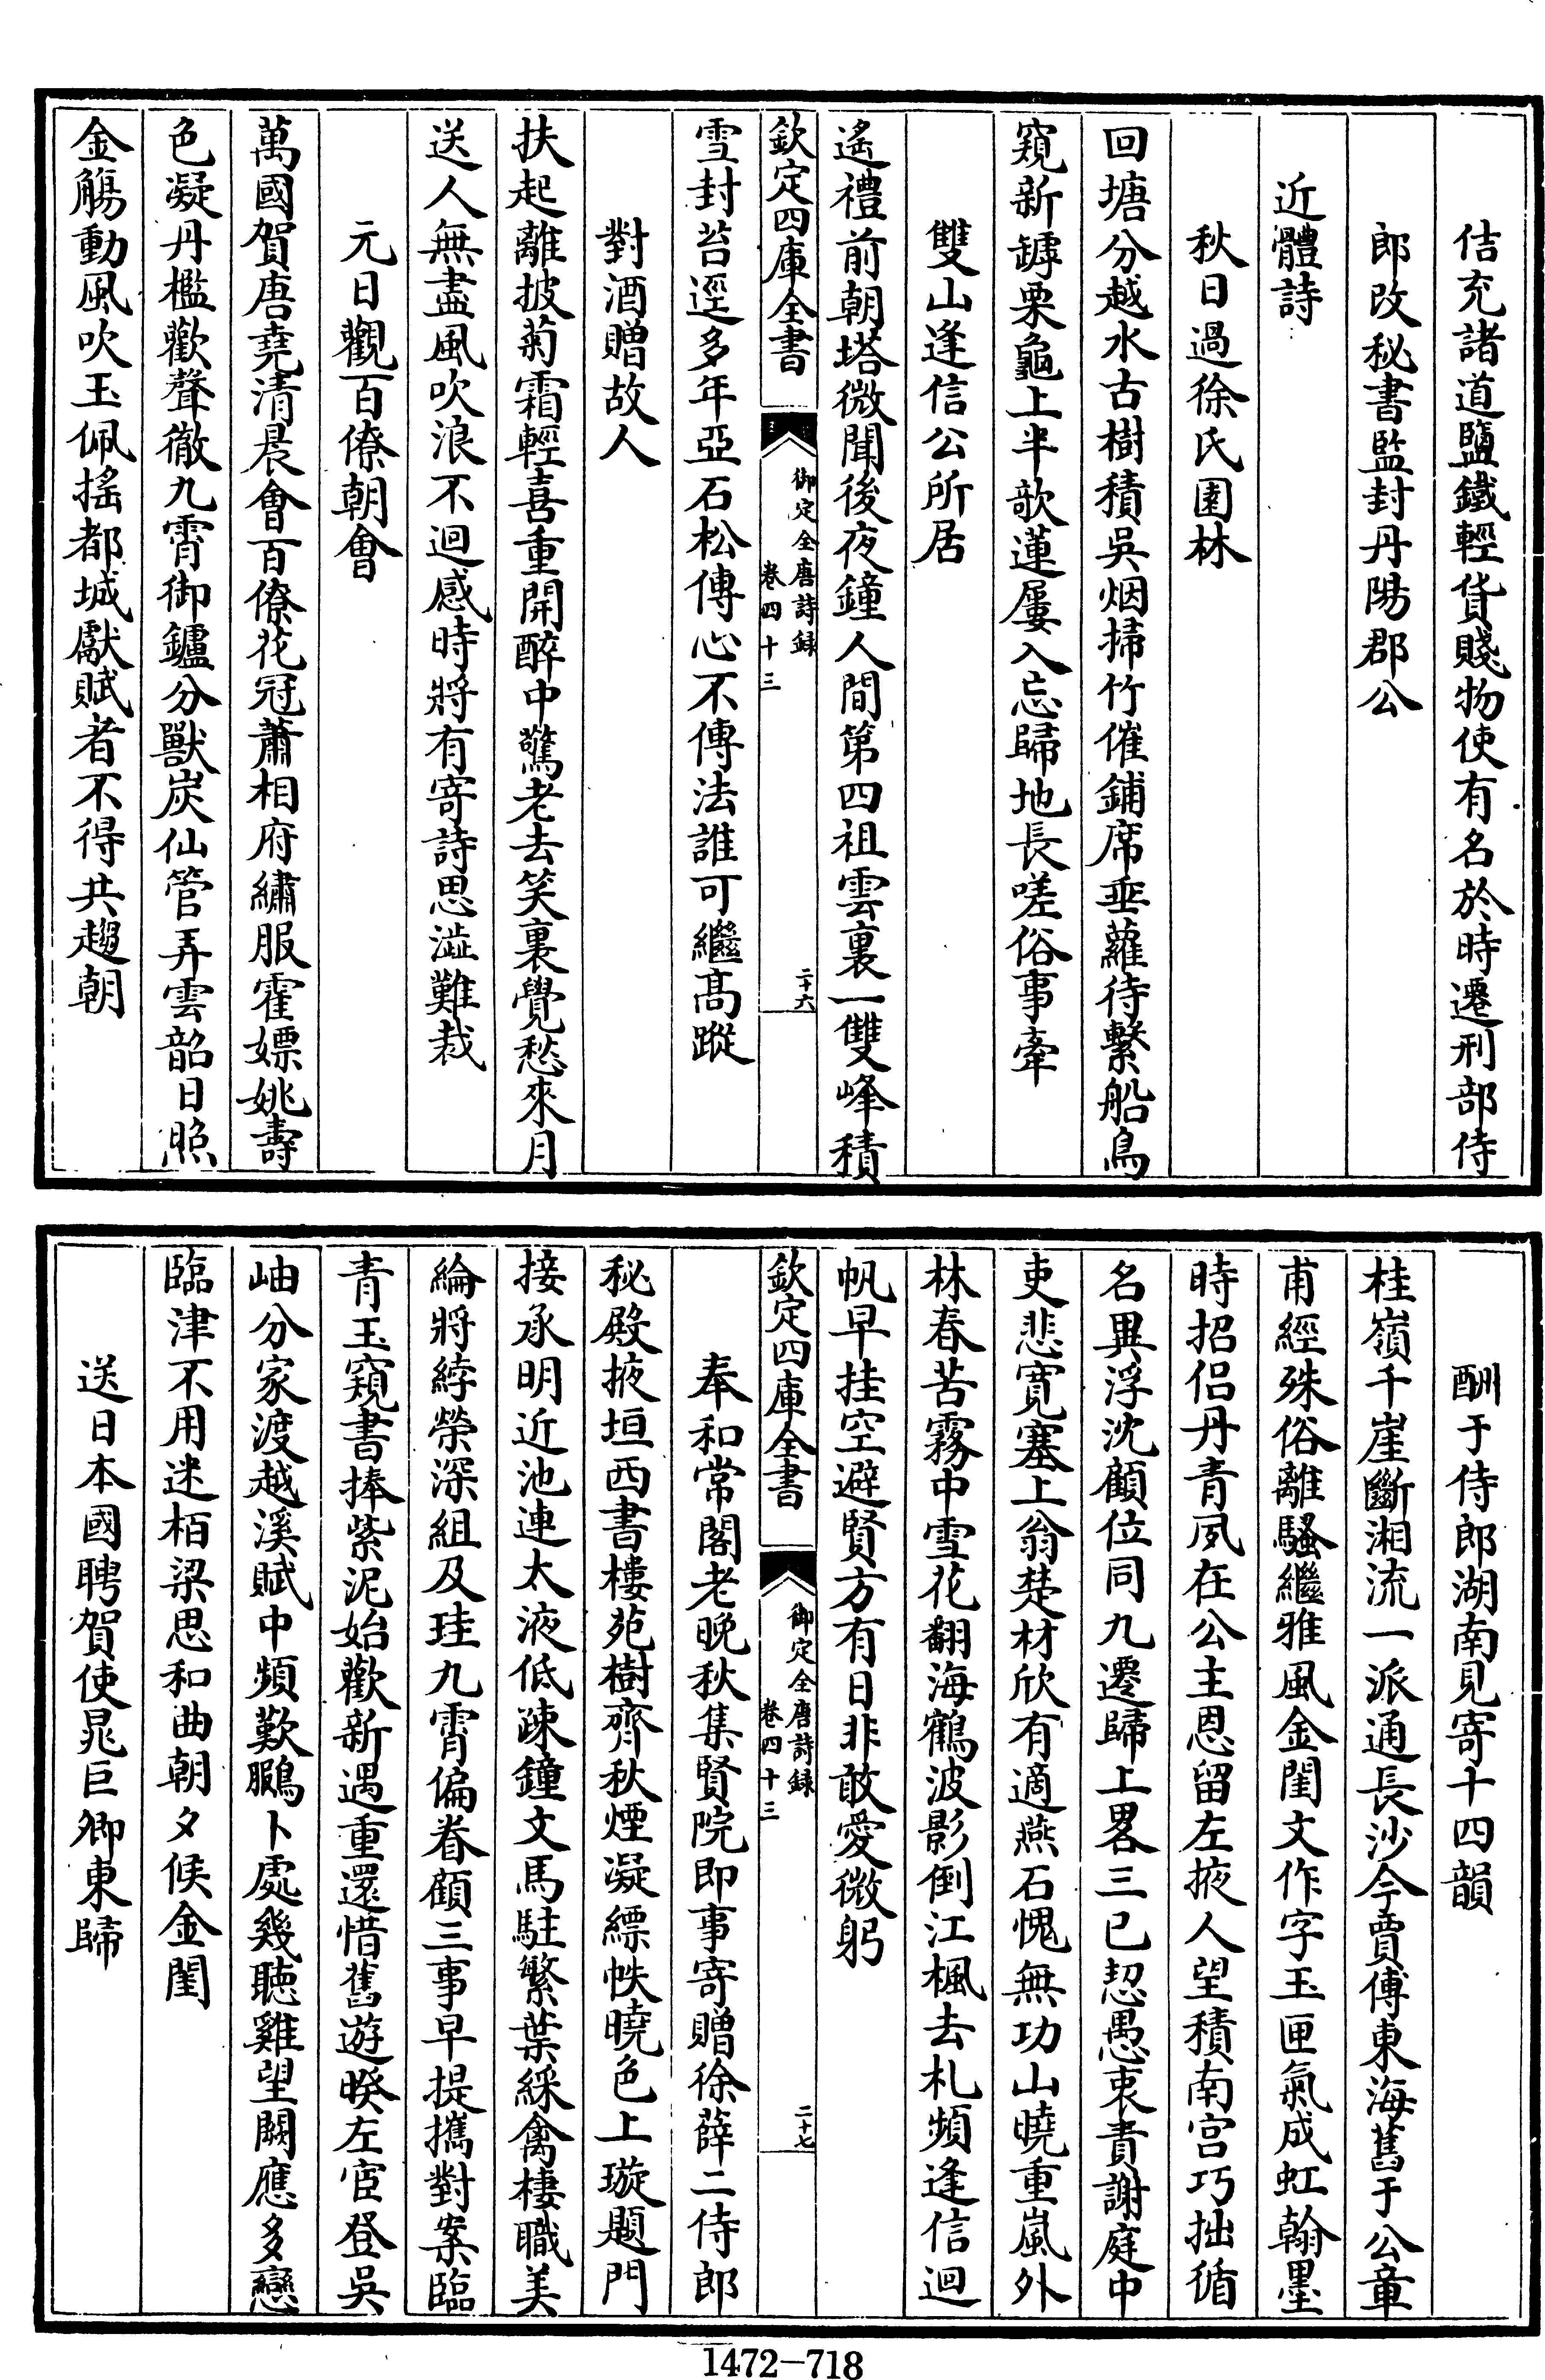 佶充諸道鹽鐵輕貨賤物使有名於時遷刑部侍
郎改秘書監封丹陽郡公
近體詩
秋日過徐氏園林
回塘分越水古樹積吳烟掃竹催鋪席垂蘿待繫船鳥
窺新罅栗龜上半欹蓮屢入忘歸地長嗟俗事牽
雙山逢信公所居
遙禮前朝塔微聞後夜鐘人間第四祖雲裏一雙峰積
欽定四庫全書
御定全唐詩録
卷四十三
二十六
雪封苔逕多年亞石松傳心不傳法誰可繼高蹤
對酒贈故人
扶起離披菊霜輕喜重開醉中驚老去笑裏覺愁來月
送人無盡風吹浪不迴感時將有寄詩思澁難裁
元日觀百僚朝會
萬國賀唐堯清晨會百僚花冠蕭相府繡服霍嫖姚壽
色凝丹檻歡聲徹九霄御鑪分獸炭仙管弄雲韶日照
金觴動風吹玉佩搖都城獻賦者不得共趨朝
酬于侍郎湖南見寄十四韻
桂嶺千崖斷湘流一派通長沙今賈傅東海舊于公章
甫經殊俗離騷繼雅風金閨文作字玉匣氣成虹翰墨
時招侣丹青夙在公主恩留左掖人望積南宮巧拙循
名異浮沈顧位同九遷歸上畧三已契愚衷責謝庭中
吏悲寬塞上翁楚材欣有適燕石愧無功山曉重嵐外
林春苦霧中雪花翻海鶴波影倒江楓去札頻逢信迴
帆早挂空避賢方有日非敢愛微躬
欽定四庫全書
御定全唐詩録
卷四十三
二十七
奉和常閣老晚秋集賢院即事寄贈徐薛二侍郎
秘殿掖垣西書樓苑樹齊秋煙凝縹帙曉色上璇題門
接承明近池連太液低疎鐘文馬駐繁葉綵禽棲職美
綸將綍榮深組及珪九霄偏眷顧三事早提攜對案臨
青玉窺書捧紫泥始歡新遇重還惜舊遊暌左宦登吳
岫分家渡越溪賦中頻歎鵩卜處幾聽雞望闕應多戀
臨津不用迷栢梁思和曲朝夕候金閨
送日本國聘賀使晁巨卿東歸
1472—718